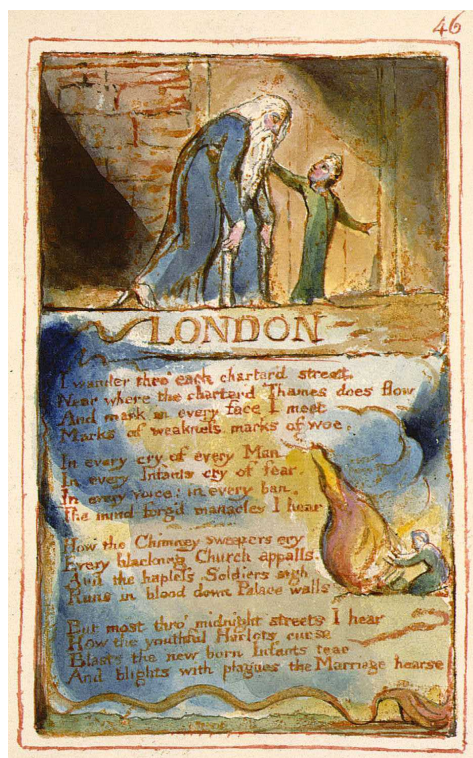 46
LONDON
I wander thro each charterd street,
Near where the charterd Thames does flow
And mark in every face I meet
Marks of weakness marks of woe.
In every cry of every Man
In every Infants cry of fear
In every voice; in every ban,
The mind-forgd manacles I hear
How the Chimney sweepers cry
Every blackning Church appalls,
And the hapless Soldiers sigh
Runs in blood down Palace walls
But most thro' midnight streets I hear
How the youthful Harlots curse
Blasts the new born Infants tear
And blights with plagues the Marriage hearse